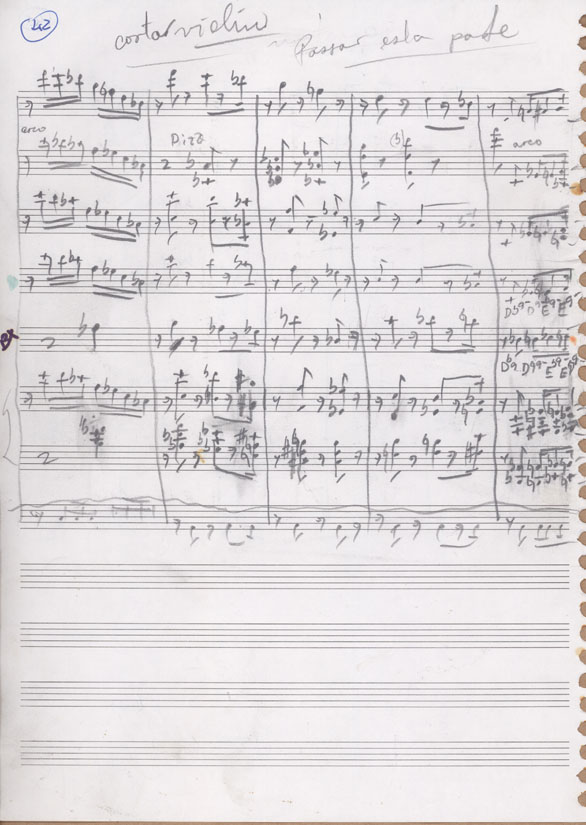 22
cortar violin
Passar esta parte
arco
Pizz
(b)
arco
Db9- D9- E9- E9
Db9 D9- E9- E9